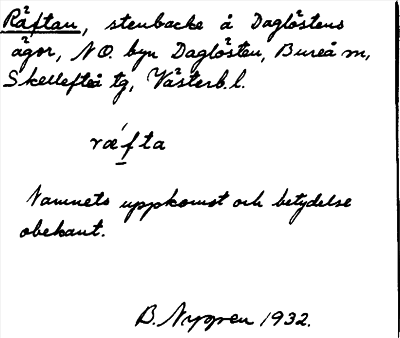 Räftan, stenbacke å Daglöstens
ägor, NO. byn Daglösten, Bureå sn,
Skellefteå tg, Västerb. l.
rǽfta
Namnets uppkomst och betydelse
obekant.
B. Nygren 1932.